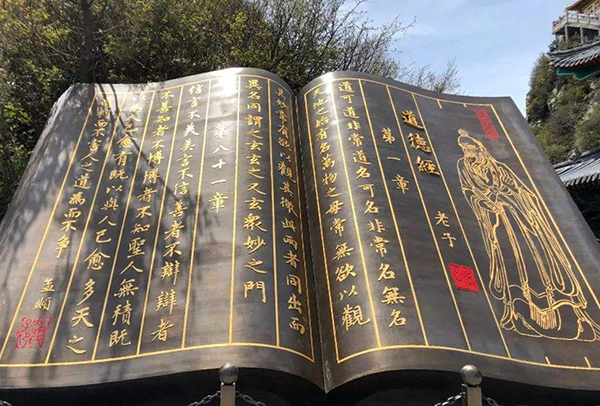 道德經
老子
第一章
道可道非常道名可名非常名無名
天地始有名萬物之母常無欲以觀
其妙常有欲以觀其徼此兩者同出而
異名同謂之玄玄之又玄衆妙之門
第八十一章
信言不美美言不信善者不辯辯者
不善知者不博博者不知聖人無積既
以為人己愈有既以與人己愈多天之
害聖人道為而不爭
孟頫